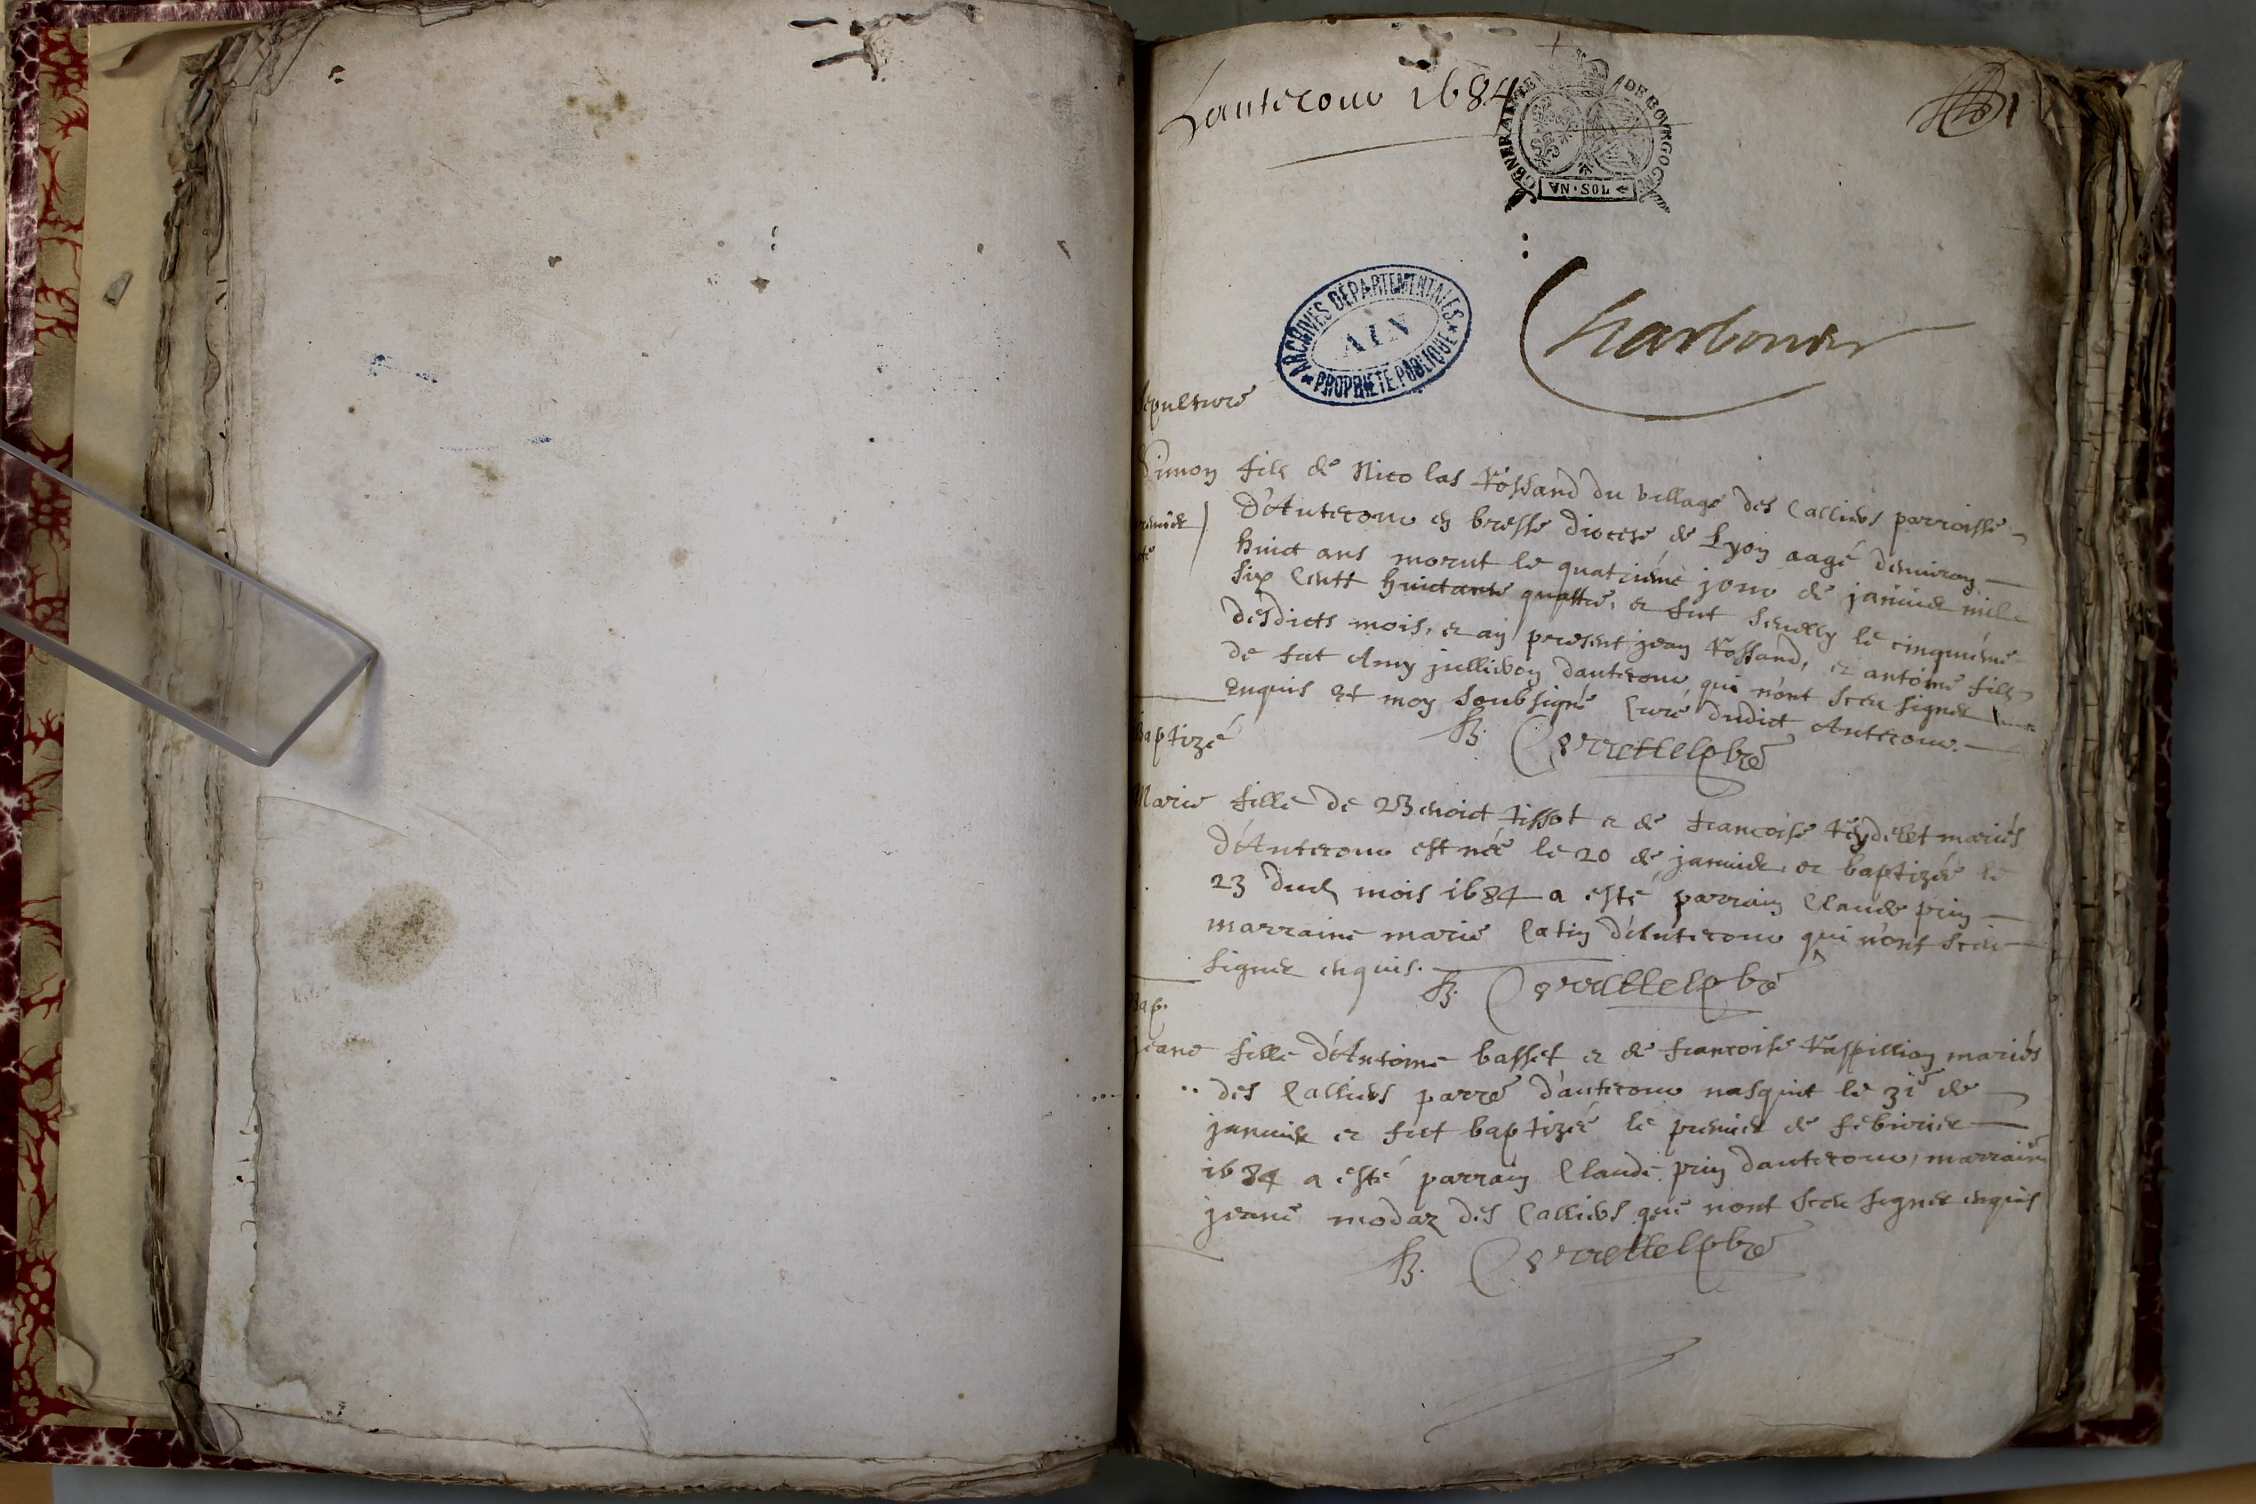 Lantenow 1684
GENERALITE DE BOVRGOGNE
VN·SOL
1
ARCHIVES DÉPARTEMENTALES
AIN
PROPRIÉTÉ PUBLIQUE
Charbonier
Sepulture
Simon fils de Nicolas Rossand du village des Calliers parroisse
d'Antenow en bresse diocese de Lyon aagé denuiron
huict ans morut le quatrieme jour de januier mille
six cents huictante quattre, et fut seuelly le cinquieme
desdicts mois, et an present jean Rossand, et antoine fils
de fut Amy jullieron dantenow qui n'ont sceu signer
enquis Et moy soubsigné Curé dudict Antenow.
Baptizé
Marie fille de Benoict tissot et de francoise Reydellet mariés
d'Antenow est née le 20 de januier et baptizée le
23 dud mois 1684 a esté parrain Claude prin
marraine marie Catin d'Antenow qui n'ont sceu
signer enquis.
Bap.
jeane fille d'Antoine basset et de francoise Raspillion mariés
des Calliers parre d'antenow nasquit le 31e de
januier et fut baptizée le premier de febvrier
1684 a esté parrain Claude prin dantenow, marraine
jeane modaz des Calliers qui nont sceu signer enquis